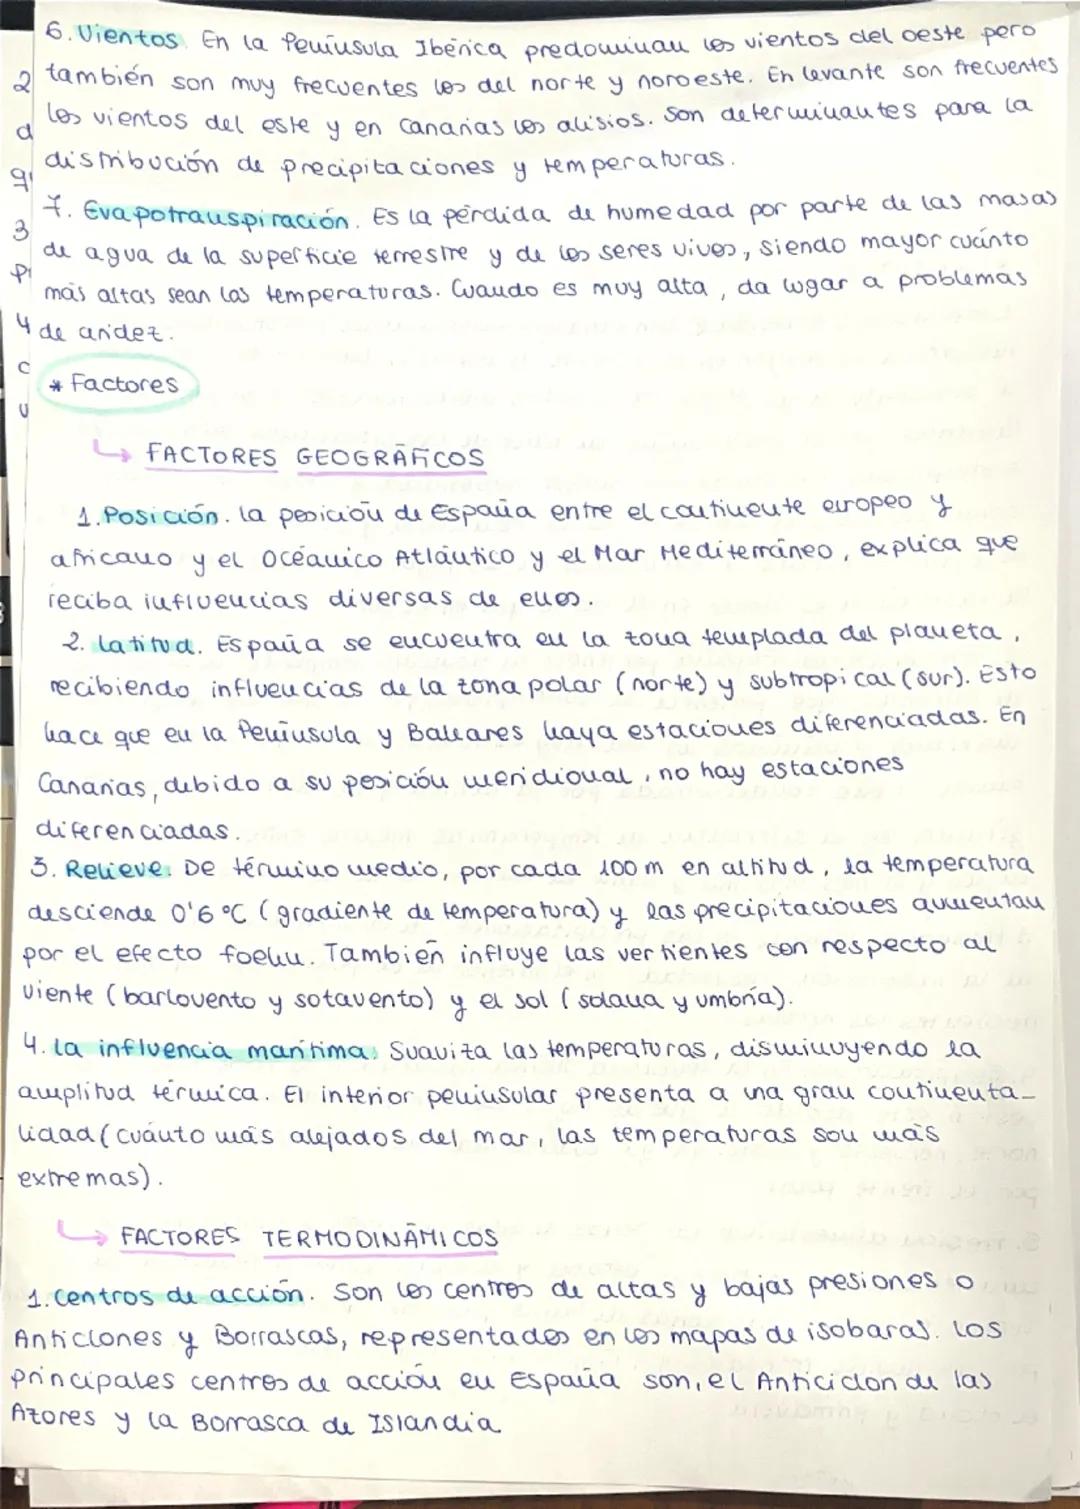 6. Vientos. En la Península Ibérica predominan los vientos del oeste pero
también son muy frecuentes los del norte y noroeste. En levante son frecuentes
los vientos del este y en Canarias los alisios. Son determinantes para la
distribución de precipitaciones y temperaturas.
7. Evapotranspiración. Es la pérdida de humedad por parte de las masas
de agua de la superficie terrestre y de los seres vivos, siendo mayor cuánto
más altas sean las temperaturas. Cuando es muy alta, da lugar a problemas
de aridez.
* Factores
↳ FACTORES GEOGRÁFICOS
1. Posición. la posición de España entre el continente europeo y
africano y el Océanico Atlántico y el Mar Mediterráneo, explica que
reciba influencias diversas de ellos.
2. latitud. España se encuentra en la zona templada del planeta,
recibiendo influencias de la zona polar (norte) y subtropical (sur). Esto
hace que en la Península y Baleares haya estaciones diferenciadas. En
Canarias, debido a su posición meridional, no hay estaciones
diferenciadas.
3. Relieve. De término medio, por cada 100 m en altitud, la temperatura
desciende 0'6 °C (gradiente de temperatura) y las precipitaciones aumentan
por el efecto foehn. También influye las vertientes con respecto al
viente (barlovento y sotavento) y el sol (solana y umbría).
4. la influencia marítima. Suaviza las temperaturas, disminuyendo la
amplitud térmica. El interior peninsular presenta a una gran continenta-
lidad (cuánto más alejados del mar, las temperaturas son más
extremas).
↳ FACTORES TERMODINÁMICOS
1. Centros de acción. Son los centros de altas y bajas presiones o
Anticlones y Borrascas, representados en los mapas de isobaras. Los
principales centros de acción en España son, el Anticiclon de las
Azores y la Borrasca de Islandia
2
d
q
3
p
4
c
u